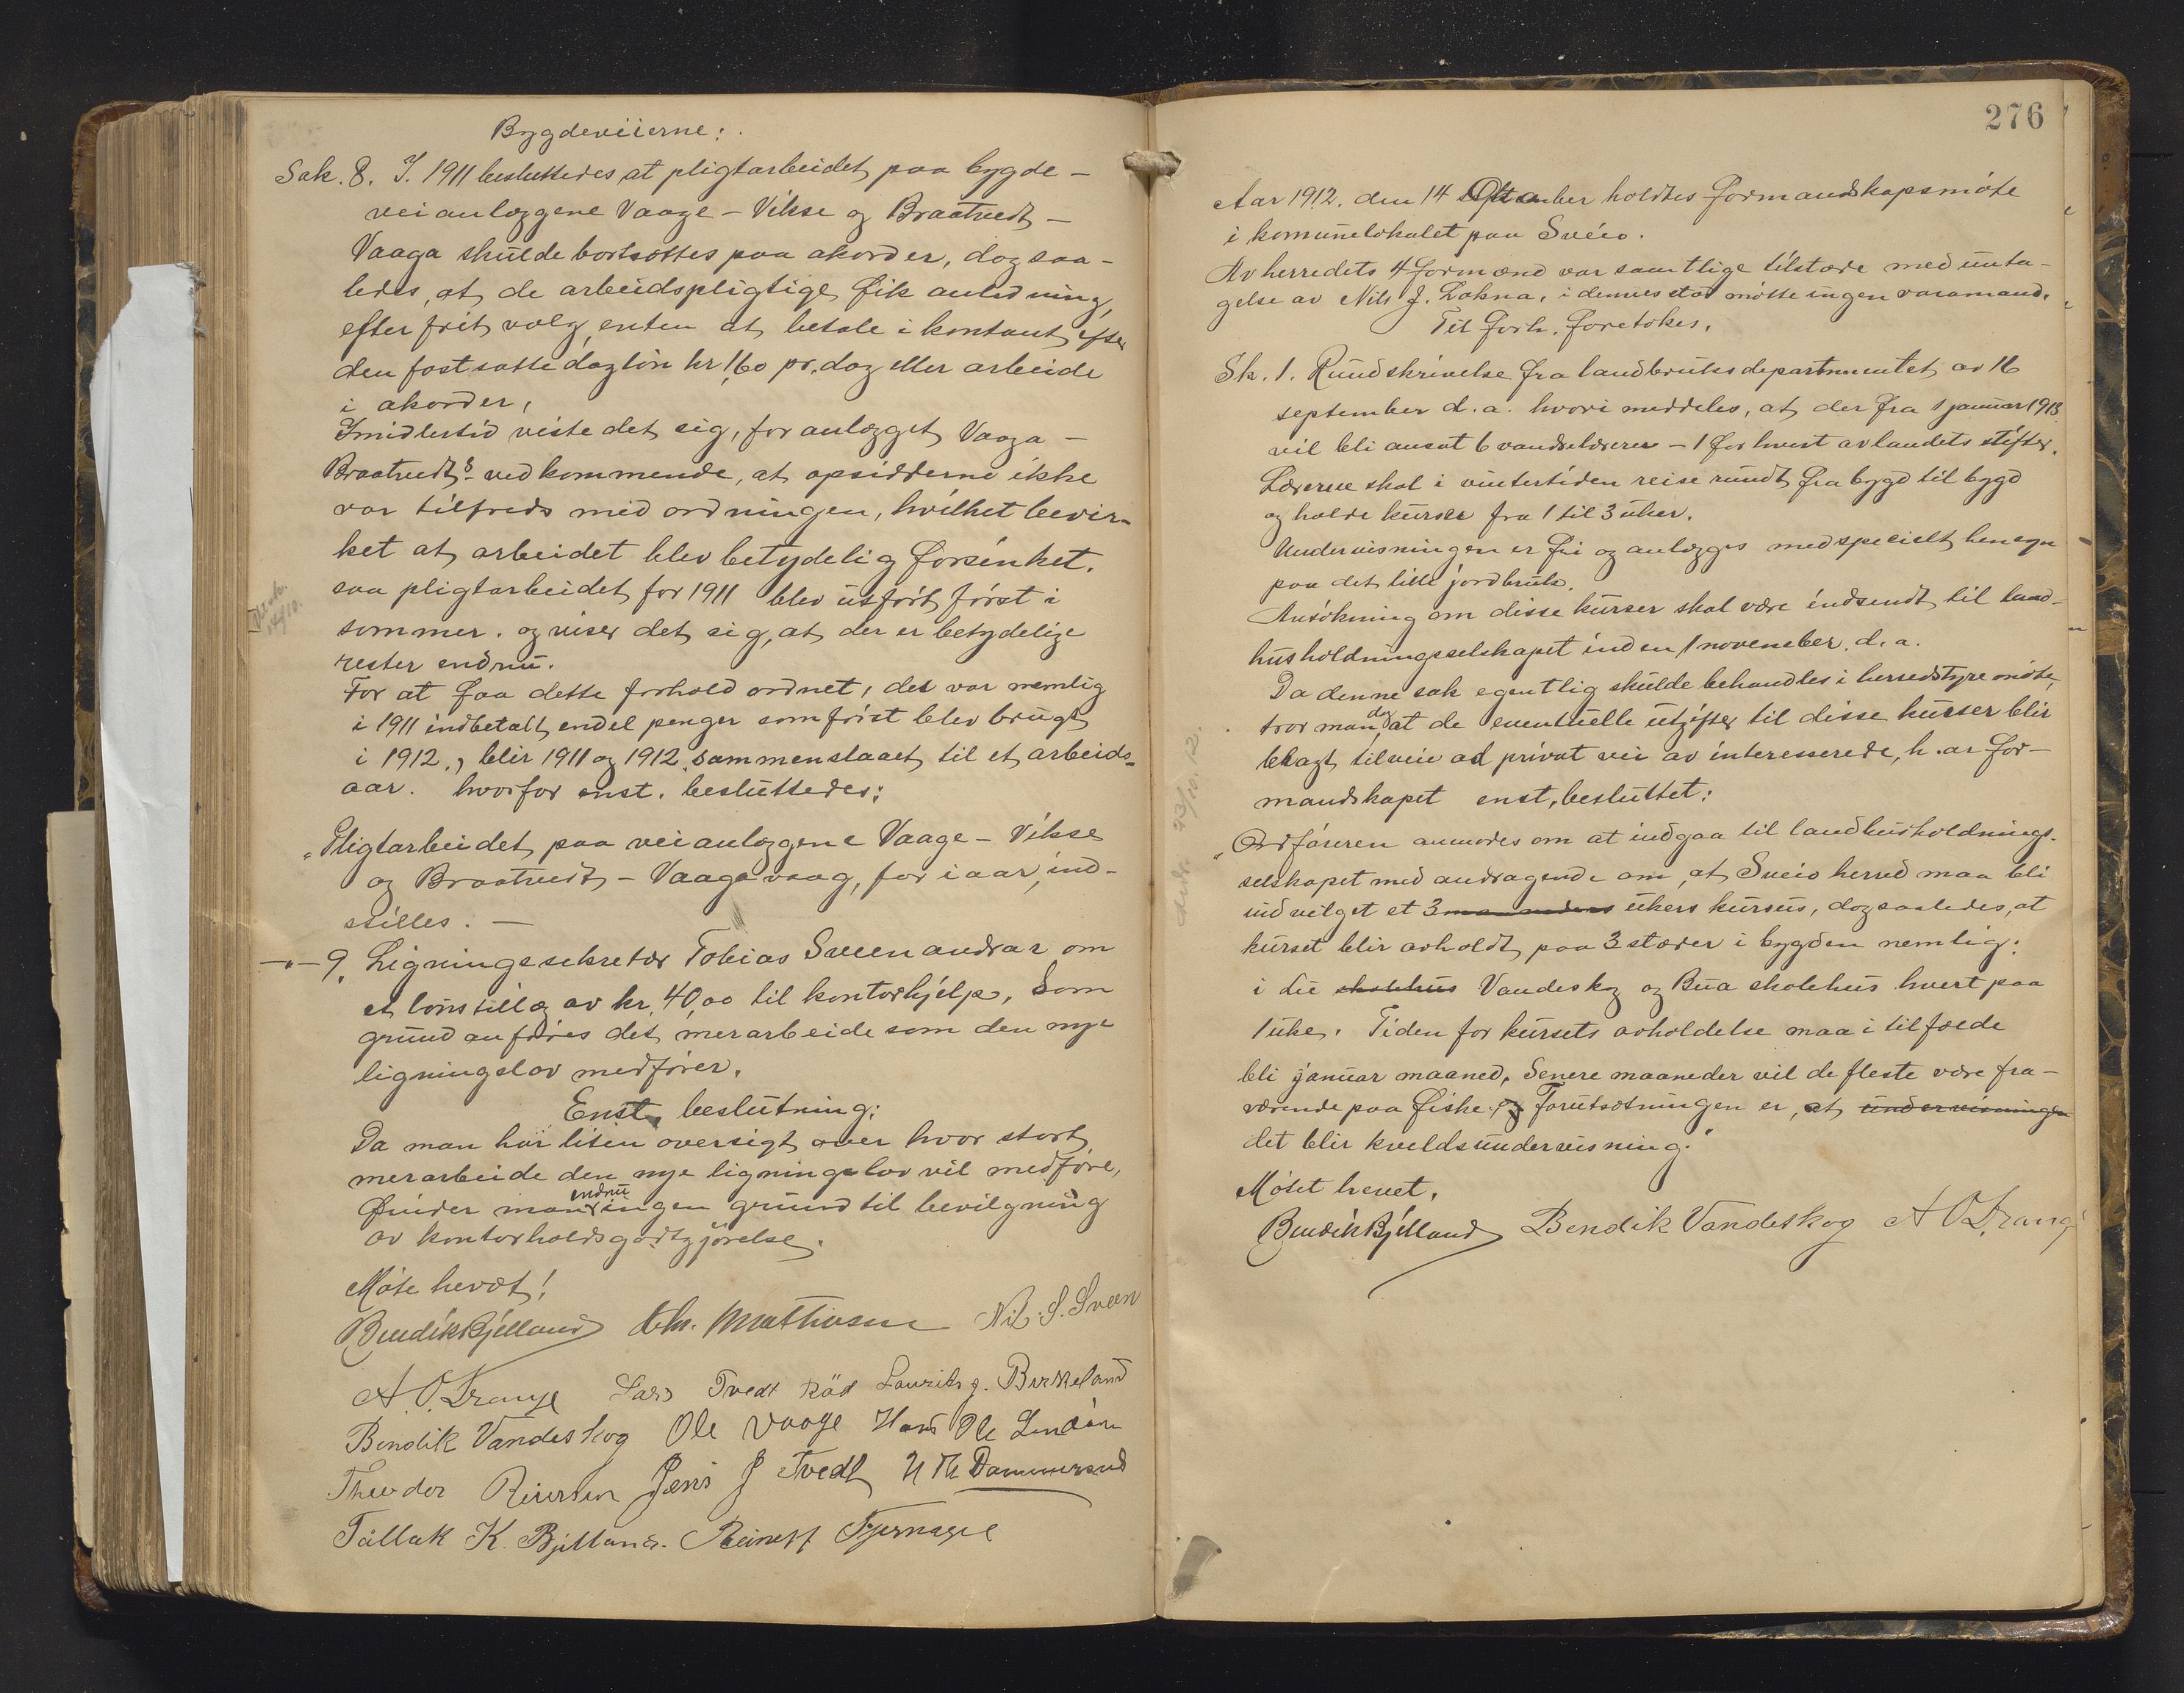 Bygdeveiierne:
Sak. 8. I. 1911 besluttedes at pligtarbeidet paa bygde-
veianlæggene Vaage - Vikse og Braatvedt -
Vaaga skulde bortsættes paa akorder, dog saa-
ledes, at de arbeidspligtige fik anledning,
efter frit valg, enten at betale i kontant efter
den fastsatte dagløn kr 1,60 pr. dag eller arbeide
i akorder,
Imidlertid viste det sig, for anlægget Vaaga -
Braatvedts vedkommende, at opsidderne ikke
var tilfreds med ordningen, hvilket bevir-
ket at arbeidet blev betydelig forsinket.
saa pligtarbeidet for 1911 blev utført først i
sommer. og viser det sig, at der er betydelige
rester endnu.
For at faa dette forhold ordnet, det var nemlig
i 1911 indbetalt endel penger som først blev brugt
i 1912, blir 1911 og 1912 sammenslaaet til et arbeids-
aar. hvorfor enst. besluttedes:
"Pligtarbeidet paa veianlæggene Vaage - Vikse
og Braatvedt - Vaagavaag, for i aar, ind-
stilles. -
-"- 9. Ligningssekretær Tobias Sveen andrar om
et lønstillæg av kr. 40,00 til kontorhjelp, Som
grund anføres det merarbeide som den nye
ligningslov medfører.
Enst. beslutning:
Da man har liten oversigt over hvor stort
merarbeide den nye ligningslov vil medføre,
finder man endnu ingen grund til bevilgning
av kontorholdsgodtgjørelse.
Møte hevet!
Bendik Bjelland Chr. Mathiasen Nils S. Sveen
A. O. Drange Lars Tvedt Laurits J. Birkeland
Bendik Vandeskog Ole Vaage Hans Ole
Theodor Reiersen Jens J Tvedt N Th Dammersnd
Tallak K. Bjelland. Reinert Tjernagel
276
Aar 1912. den 14 Oktober holdtes formandskapsmøte
i komunelokalet paa Sveio.
Av herredets 4 formænd var samtlige tilstæde med unta-
gelse av Nils J. Lokna, i dennes sted møtte ingen varamand.
Til forh. foretokes,
Sk. 1. Rundskrivelse fra landbruksdepartementet av 16
september d.a. hvori meddeles, at der fra 1 januar 1913
vil bli ansat 6 vandrelærere - 1 for hvert av landets stifter.
Lærerne skal i vintertiden reise rundt fra bygd til bygd
og holde kurser fra 1 til 3 uker.
Undervisningen er fri og anlægges med specielt hensyn
paa det lille jordbruk.
Ansøkning om disse kurser skal være indsendt til land-
husholdningsselskapet inden 1 november. d.a.
Da denne sak egentlig skulde behandles i herredstyremøte,
tror man dog at de eventuelle utgifter til disse kurser blir
bragt tilveie ad privat vei av interesserede, h.ar for-
mandskapet enst, besluttet:
"Ordføreren anmodes om at indgaa til landhusholdnings-
selskapet med andragende om, at Sveio herred maa bli
indvilget et 3 maaneders ukers kursus, dog saaledes, at
kurset blir avholdt paa 3 stæder i bygden nemlig:
i Lie skolehus Vandeskog og Bua skolehus hvert paa
1 uke. Tiden for kursets avholdelse maa i tilfælde
bli januar maaned, Senere maaneder vil de fleste være fra-
værende paa fiske. og forutsætningen er, at undervisningen
det blir kveldsundervisning."
Møtet hevet,
Bendik Bjelland Bendik Vandeskog A O Drange